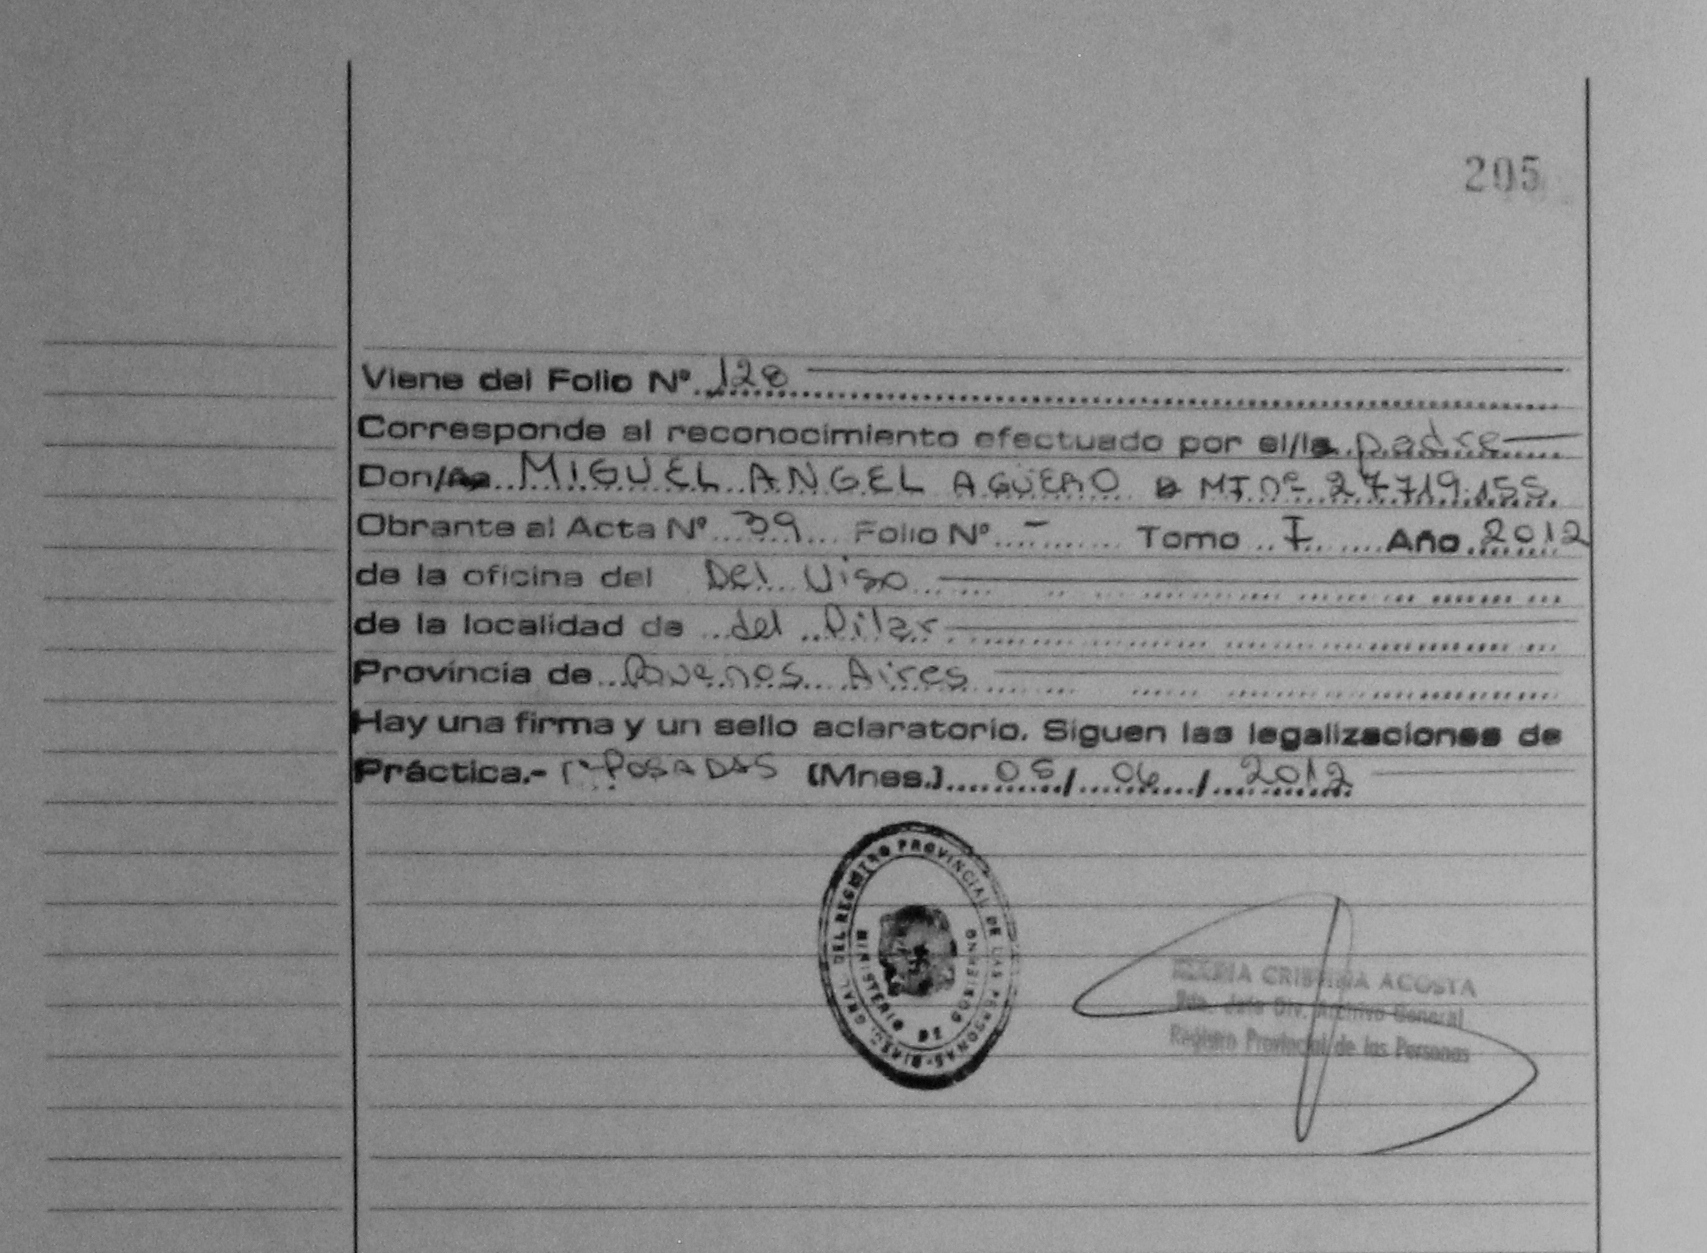 205
Viene del Folio Nº 128
Corresponde al reconocimiento efectuado por el/la padre
Don/ña MIGUEL ANGEL AGÜERO MI nº 27.719.155
Obrante al Acta Nº 39 Folio Nº - Tomo I Año 2012
de la oficina del Del Viso
de la localidad de del Pilar
Provincia de Buenos Aires
Hay una firma y un sello aclaratorio. Siguen las legalizaciones de
Práctica.- POSADAS (Mnes.) 05/ 06 / 2012
GRAL. DEL REGISTRO PROVINCIAL DE LAS PERSONAS
MINISTERIO DE GOBIERNO
MARIA CRISTINA ACOSTA
Jefe Div. Archivo General
Registro Provincial de las Personas